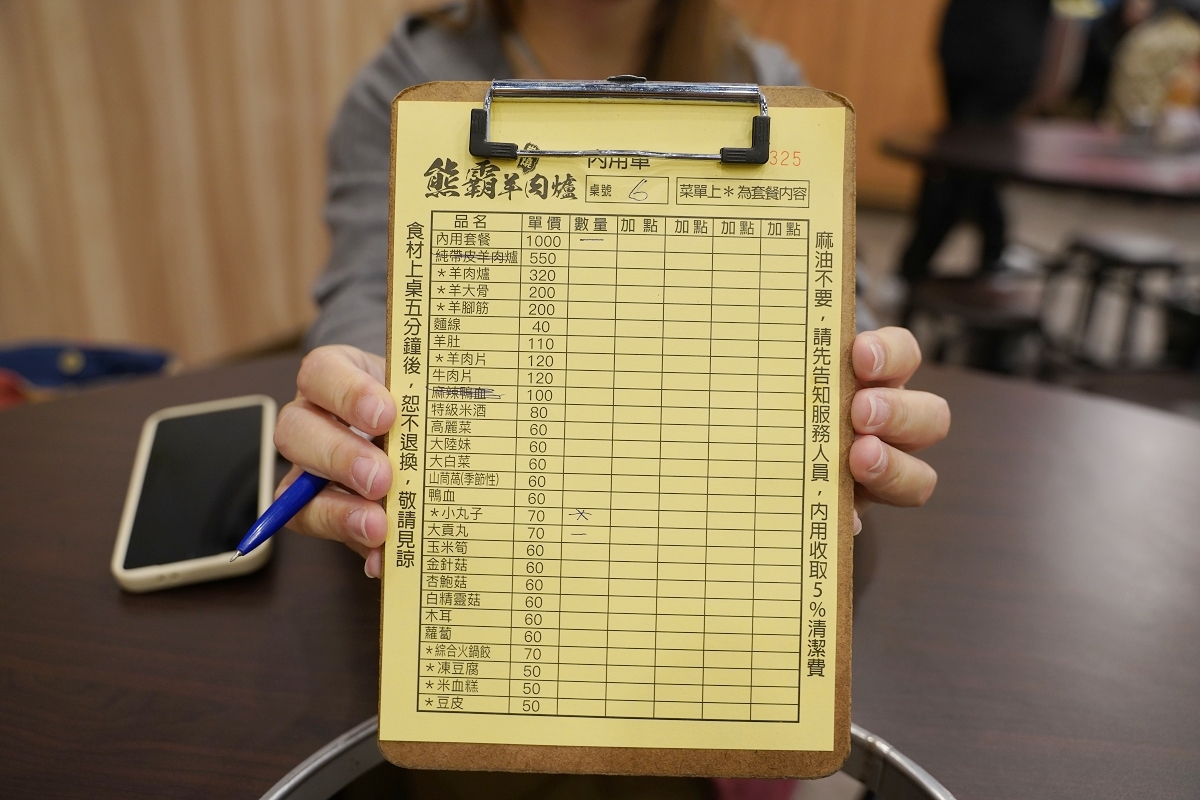 內用單
325
熊霸羊肉爐
桌號 6
菜單上＊為套餐內容
食材上桌五分鐘後，恕不退換，敬請見諒
品名 單價 數量 加點 加點 加點 加點
內用套餐 1000 一
純帶皮羊肉爐 550
＊羊肉爐 320
＊羊大骨 200
＊羊腳筋 200
麵線 40
羊肚 110
＊羊肉片 120
牛肉片 120
麻辣鴨血 100
特級米酒 80
高麗菜 60
大陸妹 60
大白菜 60
山茼萵(季節性) 60
鴨血 60
＊小丸子 70 ✕
大貢丸 70 一
玉米筍 60
金針菇 60
杏鮑菇 60
白精靈菇 60
木耳 60
蘿蔔 60
＊綜合火鍋餃 70
＊凍豆腐 50
＊米血糕 50
＊豆皮 50
麻油不要，請先告知服務人員，內用收取5%清潔費